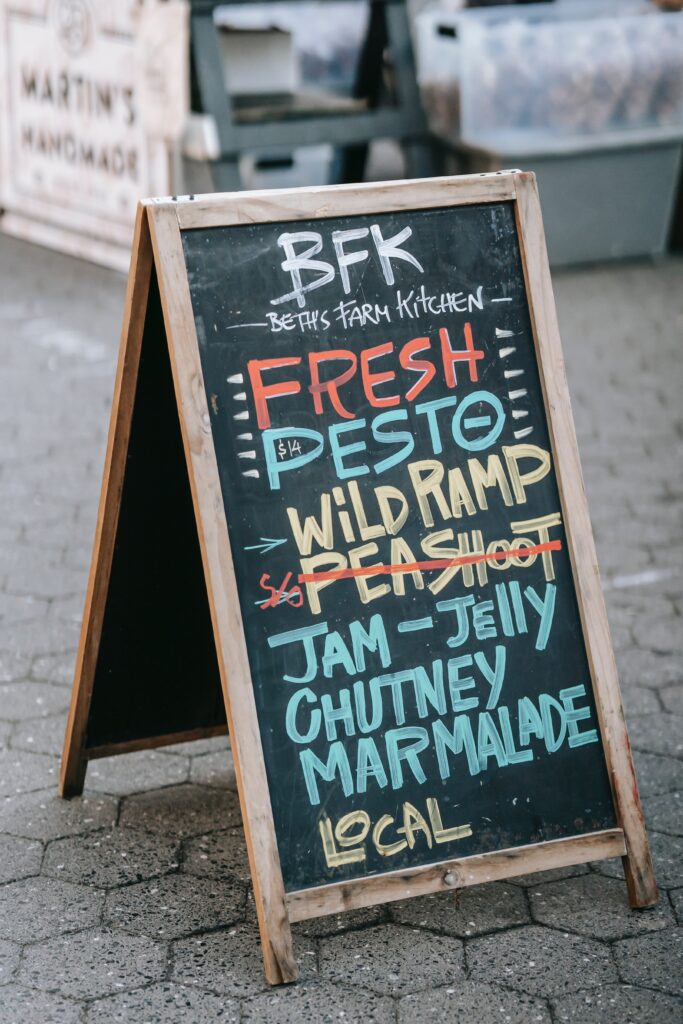 MARTIN'S
HANDMADE
BFK
— BETH'S FARM KITCHEN —
FRESH
$14
PESTO
WILD RAMP
S/O PEA SHOOT
JAM - JELLY
CHUTNEY
MARMALADE
LOCAL